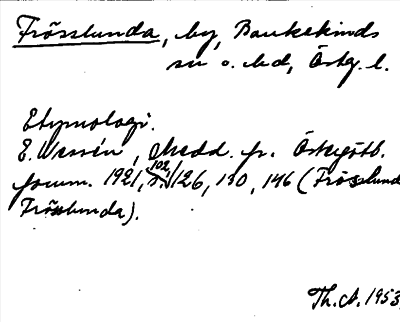 Frösslunda, by, Bankekinds
sn o. hd, Östg. l.
Etymologi.
E. Wessén, Medd. fr. Östergötl.
fornm. 1921, s. 102, 126, 130, 146 (Frösslund
Frösslunda).
Th. A. 1953.